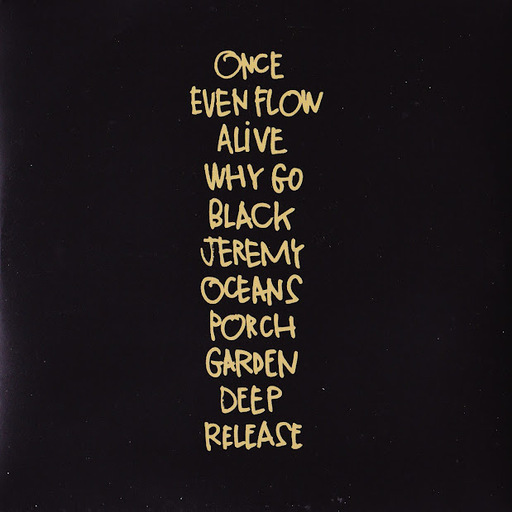 ONCE
EVEN FLOW
ALiVE
WHY GO
BLACK
JEREMY
OCEANS
PORCH
GARDEN
DEEP
RELEASE